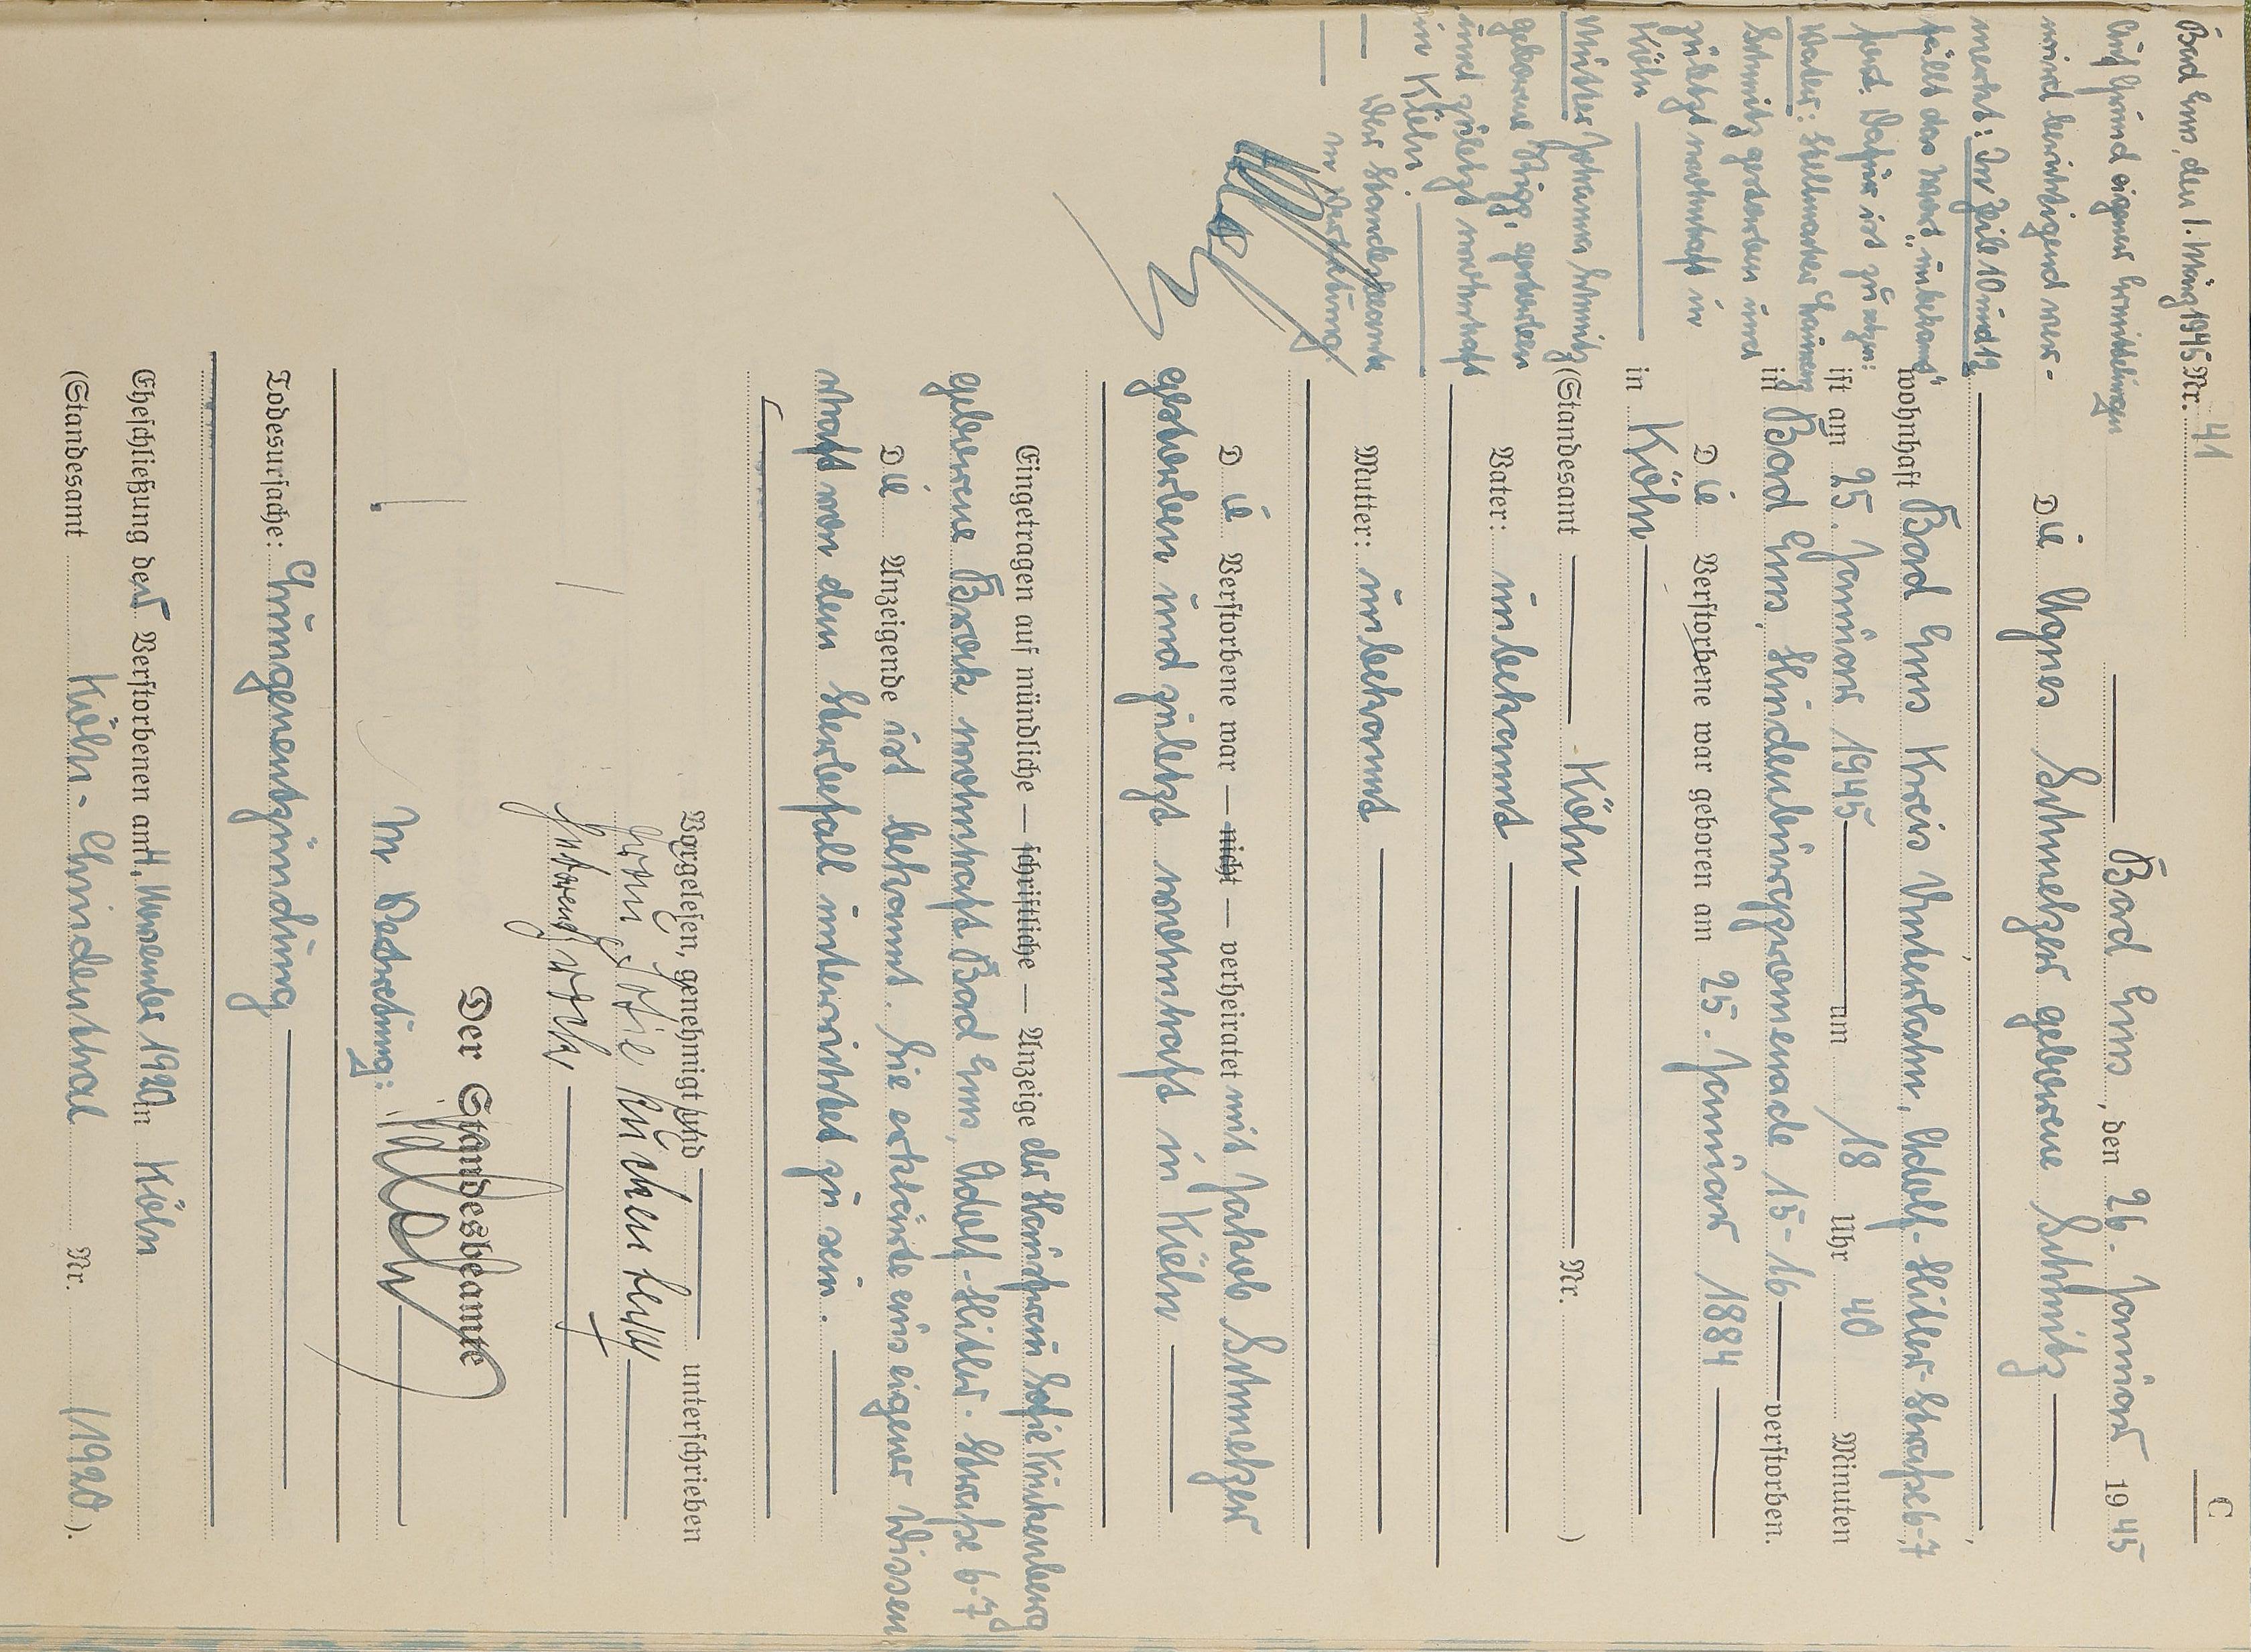 C
Nr. 41
Bad Ems, den 26. Januar 1945
Die Agnes Schmetzer geborene Schmitz
wohnhaft Bad Ems Kreis Unterlahn, Adolf-Hitler-Straße 6-7
ist am 25. Januar 1945 um 18 Uhr 40 Minuten
in Bad Ems, Hindenburgpromenade 15-16 verstorben.
Die Verstorbene war geboren am 25. Januar 1884
in Köln
(Standesamt Köln Nr. )
Vater: unbekannt
Mutter: unbekannt
Die Verstorbene war — nicht — verheiratet mit Jakob Schmetzer
gestorben und zuletzt wohnhaft in Köln
Eingetragen auf mündliche — schriftliche — Anzeige der Hausfrau Sofie Küchenberg
geborene Brock wohnhaft Bad Ems, Adolf-Hitler-Straße 6-7
Die Anzeigende ist bekannt. Sie erklärte aus eigener Wissen
schaft von dem Sterbefall unterrichtet zu sein.
Vorgelesen, genehmigt und unterschrieben
Frau Sofie Küchenberg
geborene
Der Standesbeamte
In Vertretung:
Todesursache: Lungenentzündung
Eheschließung der Verstorbenen am 11. November 1920 in Köln
(Standesamt Köln-Lindenthal Nr. /1920).
Bad Ems, den 1. März 1945
Auf Grund eigener Ermittlungen
wird berichtigend ver-
merkt: In Zeile 10 und 12
fällt das Wort „unbekannt"
fort. Dafür ist zu setzen:
Vater: Stellmacher
Schmitz gestorben und
zuletzt wohnhaft in
Köln
Mutter Johanna Schmitz
geborene gestorben
und zuletzt wohnhaft
in Köln.
Der Standesbeamte
In Vertretung